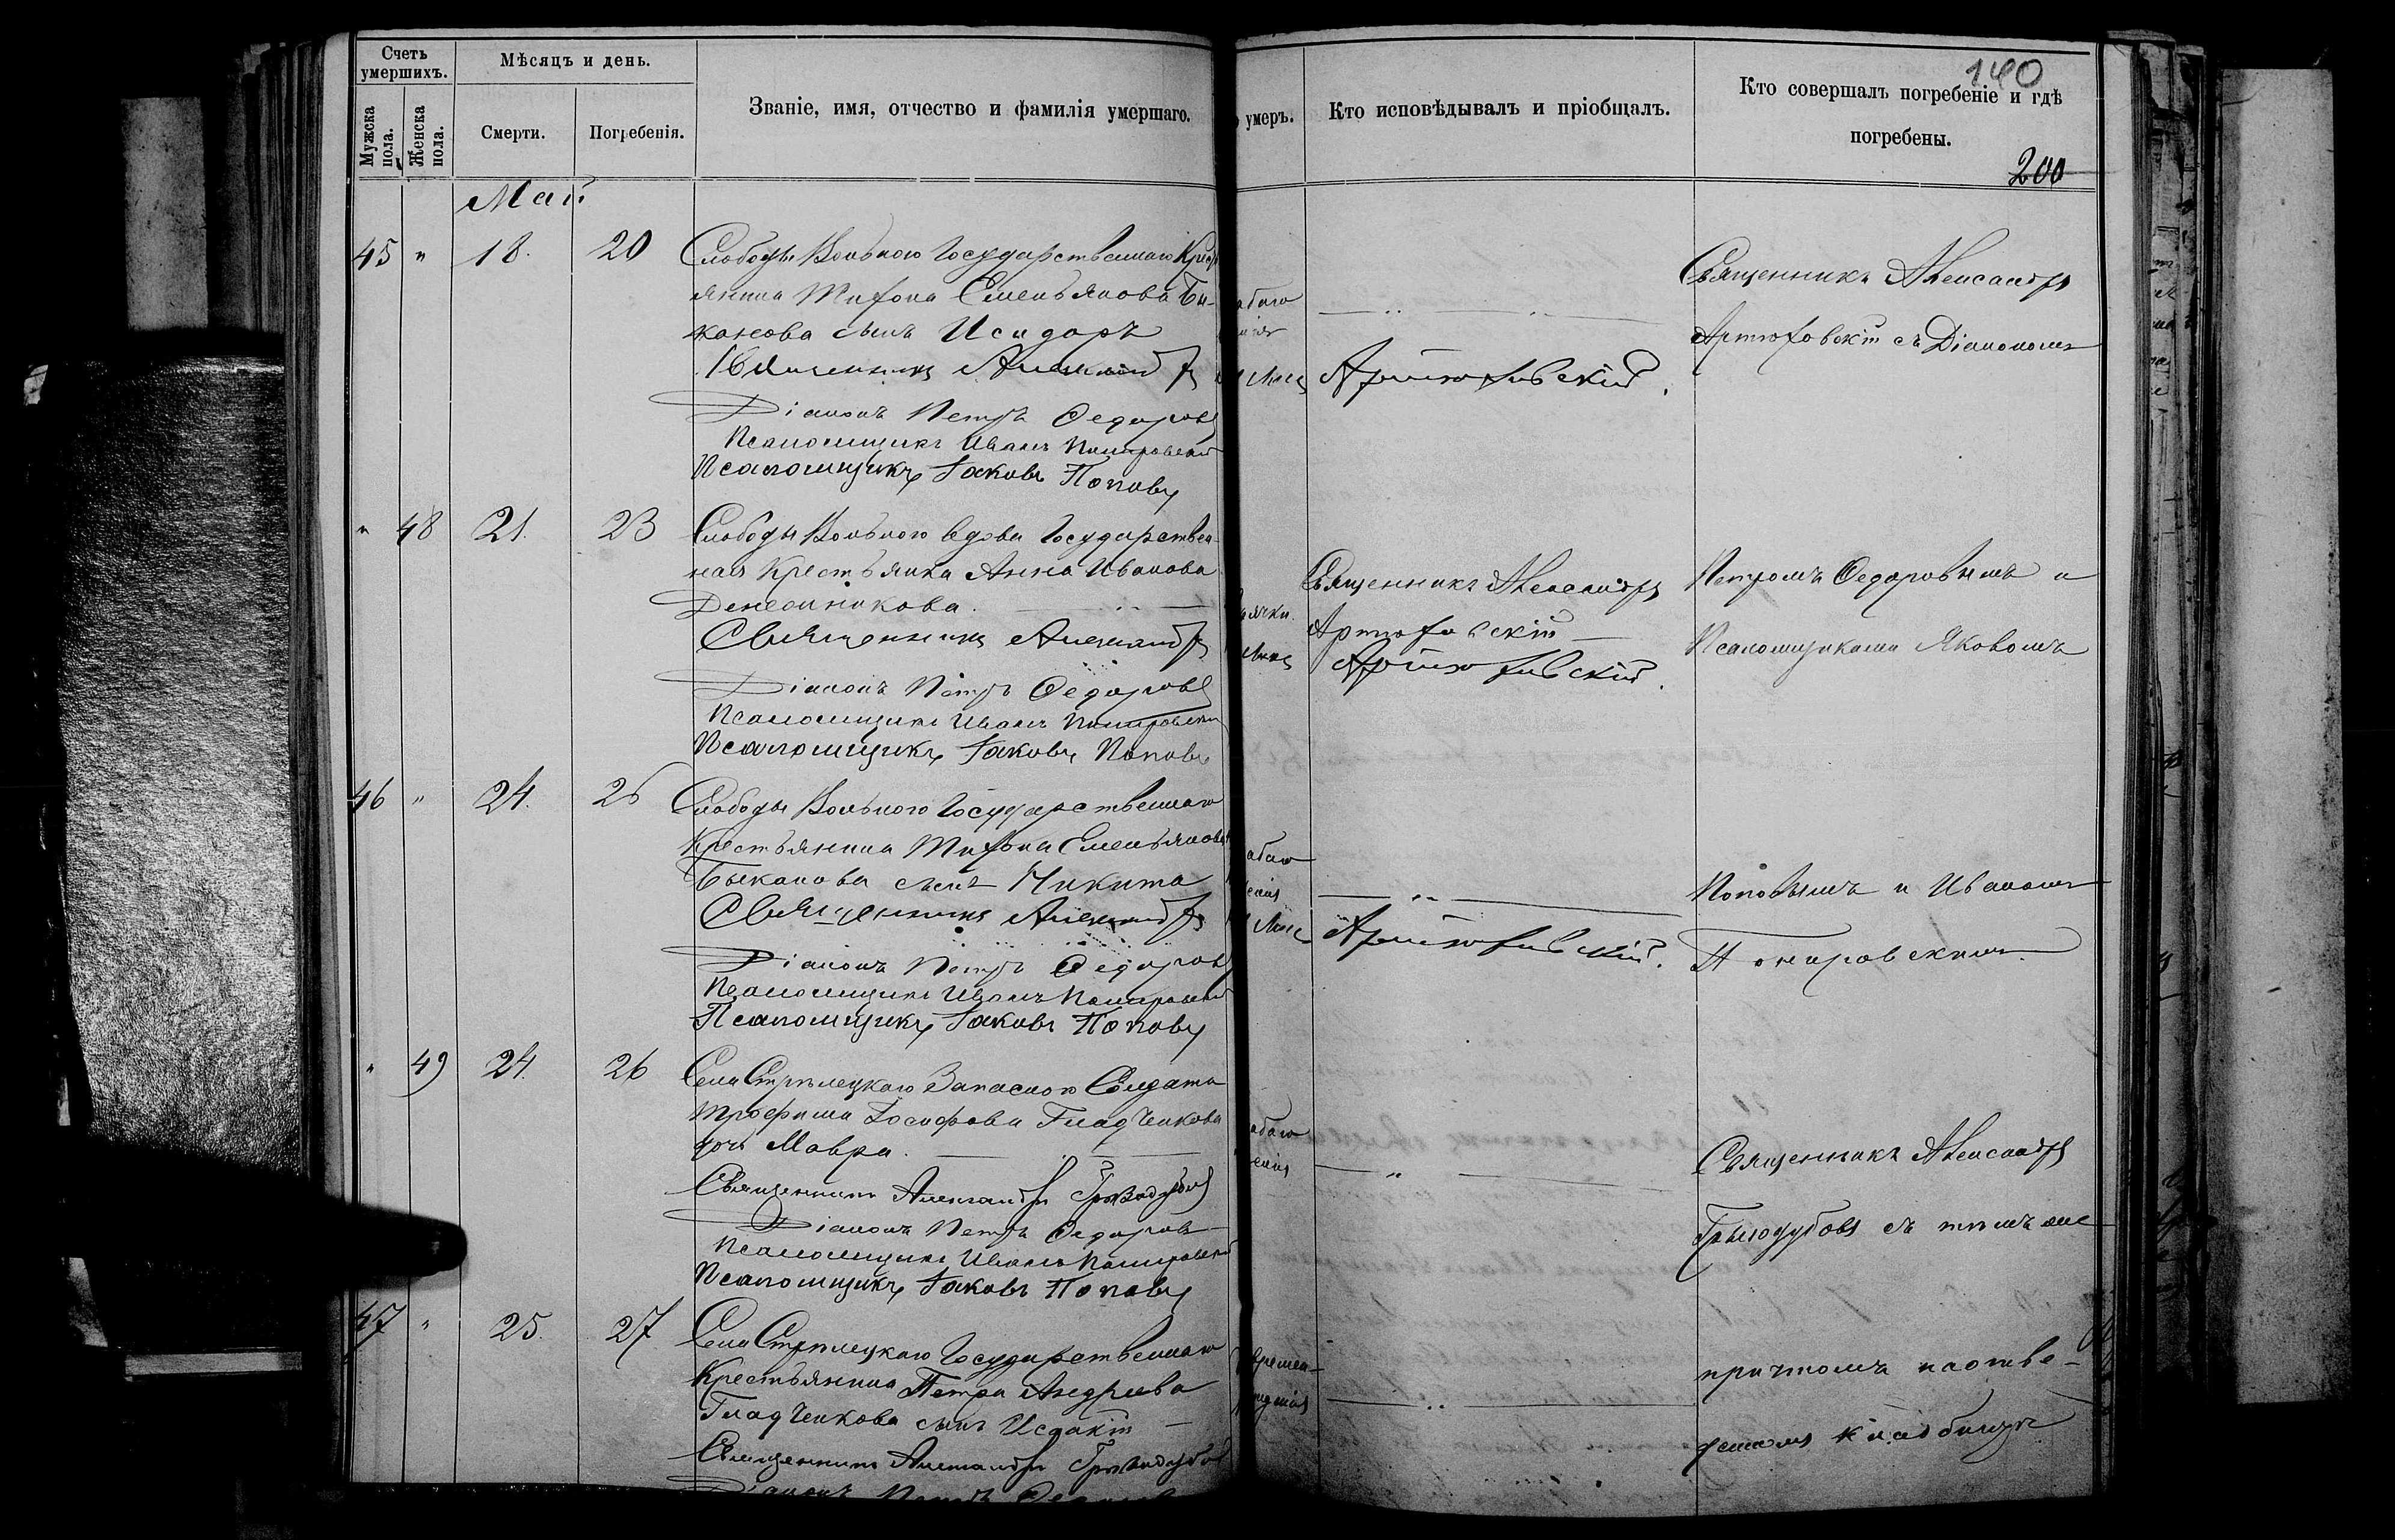 Счетъ умершихъ.
Мѣсяцъ и день.
Мужска пола.
Женска пола.
Смерти.
Погребенія.
Званіе, имя, отчество и фамилія умершаго.
умеръ.
Кто исповѣдывалъ и пріобщалъ.
Кто совершалъ погребеніе и гдѣ
погребены.
140
200
Май
45 " 18. 20 Слободы Вольнаго Государственнаго Крест
янина Тихона Емельянова Бы-
канова сынъ Исидоръ
Священникъ Александръ
Артюховскій.
Діаконъ Петръ Федоровъ
Псаломщикъ Иванъ Понировскій
Псаломщикъ Іаковъ Поповъ
Священникъ Александръ
Артюховскій съ Діакономъ
" 48 21. 23 Слободы Вольнаго вдова Государствен-
ная Крестьянка Анна Иванова
Священникъ Александръ
Діаконъ Петръ Федоровъ
Псаломщикъ Иванъ Понировскій
Псаломщикъ Іаковъ Поповъ
Священникъ Александръ
Артюховскій
Артюховскій.
Петромъ Федоровымъ и
Псаломщиками Яковомъ
46 " 24. 26 Слободы Вольнаго Государственнаго
Крестьянина Тихона Емельянова
Быканова сынъ Никита
Священникъ Александръ
Артюховскій.
Діаконъ Петръ Федоровъ
Псаломщикъ Иванъ Понировскій
Псаломщикъ Іаковъ Поповъ
Поповымъ и Иваномъ
Понировскимъ.
" 49 24. 26 Села Стрѣлецкаго Запаснаго Солдата
Трофима Іосифова Гладченкова
дочь Мавра.
Священникъ Александръ
Діаконъ Петръ Федоровъ
Псаломщикъ Иванъ Понировскій
Псаломщикъ Іаковъ Поповъ
Священникъ Александръ
съ тѣмъ же
47 " 25. 27 Села Стрѣлецкаго Государственнаго
Крестьянина Петра Андреева
Гладченкова сынъ Исаакій
Священникъ Александръ
Діаконъ Петръ Федоровъ
причтомъ на отве-
денномъ кладбищѣ